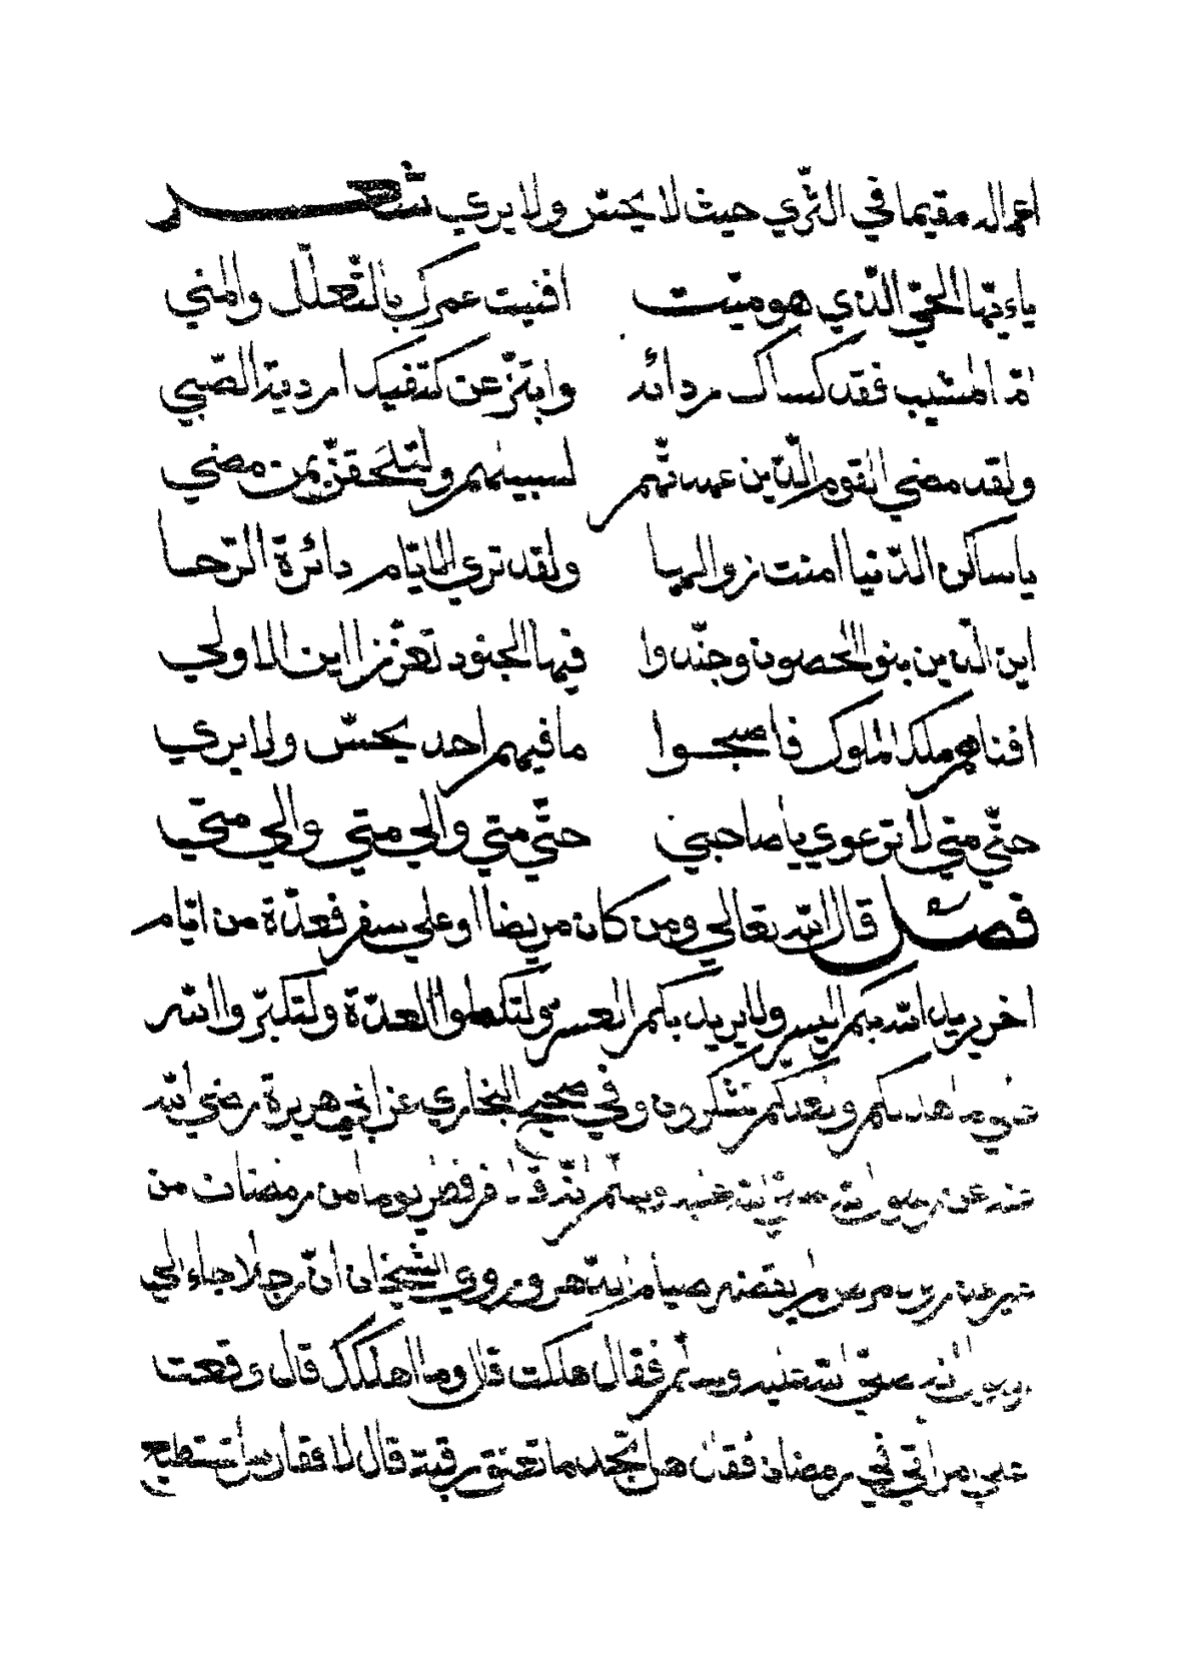 اعماله مقيما في الثّري حيث لا يحسّ ولا يري شعر
ياءيّها الحيّ الذّي هو ميّت افنيت عمرك بالتّعلّل والمني
امّا المشيب فقد كساك ردائه وابتزّ عن كتفيك ارديته الصّبي
ولقد مضي القوم الّذين عهدتّهم لسبيلهم ولتلحقنّ بمن مضي
يا ساكن الدّنيا امنت زوالها ولقد تري الايّام دائرة الرّحا
اين الّذين بنو الحصون وجنّدوا فيها الجنود تعزّزا اين الاولي
افناهم ملك الملوك فاصبحوا ما فيهم احد يحسّ ولا يري
حتّي متي لا ترعوي يا صاحبي حتّي متي والي متي والي متي
فصل قال الله تعالي ومن كان مريضا او علي سفر فعدّة من ايّام
اخر يريد الله بكم اليسر ولا يريد بكم العسر ولتكملوا العدّة ولتكبّروا الله
علي ما هداكم ولعلّكم تشكرون وفي صحيح البخاري عن ابي هريرة رضي الله
عنه عن رسول الله صلّي الله عليه وسلّم انّه قال من افطر يوما من رمضان من
غير عذر ولا مرض لم يقضه صيام الدّهر وروي الشّيخان انّ رجلا جاء الي
رسول الله صلّي الله عليه وسلّم فقال هلكت قال وما اهلكك قال وقعت
علي امراتي في رمضان فقال هل تجد ما تعتق رقبة قال لا فقال هل تستطيع